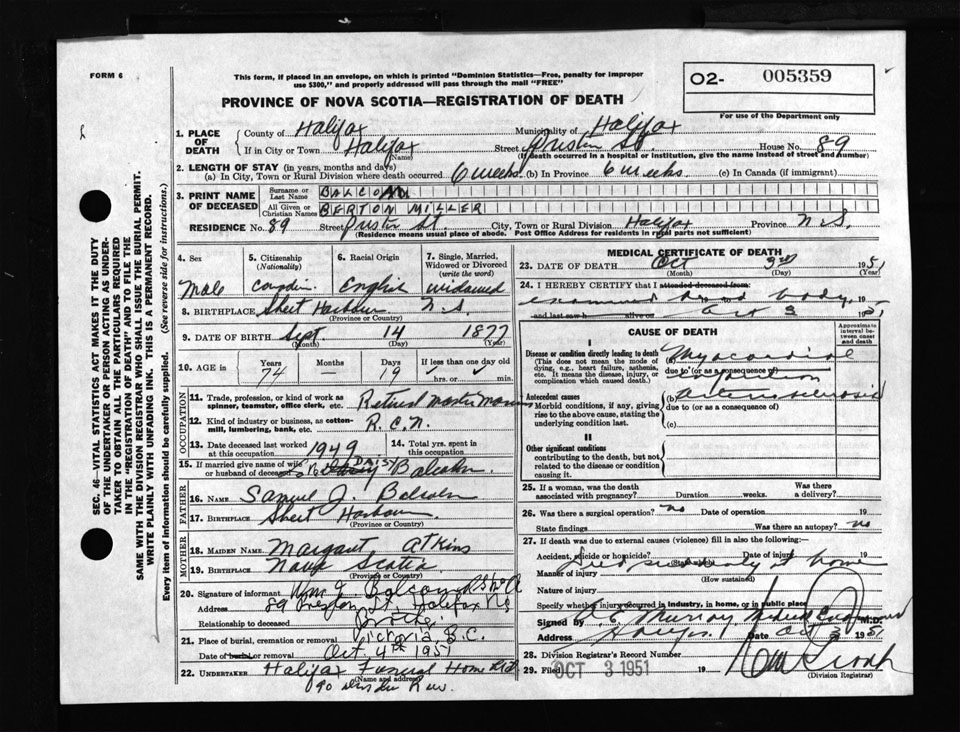 FORM 6
This form, if placed in an envelope, on which is printed "Dominion Statistics—Free, penalty for improper
use $300," and properly addressed will pass through the mail "FREE"
O2- 005359
For use of the Department only
PROVINCE OF NOVA SCOTIA—REGISTRATION OF DEATH
1. PLACE OF DEATH { County of Halifax Municipality of Halifax
If in City or Town Halifax (Name) Street St. House No. 89
(If death occurred in a hospital or institution, give the name instead of street and number)
2. LENGTH OF STAY (in years, months and days)
(a) In City, Town or Rural Division where death occurred 6 weeks (b) In Province 6 weeks (c) In Canada (if immigrant)
3. PRINT NAME OF DECEASED { Surname or Last Name BALCOM
All Given or Christian Names BERTON MILLER
RESIDENCE No. 89 Street St. City, Town or Rural Division Halifax Province N.S.
(Residence means usual place of abode. Post Office Address for residents in rural parts not sufficient)
4. Sex
Male
5. Citizenship (Nationality)
6. Racial Origin
English
7. Single, Married, Widowed or Divorced (write the word)
widowed
8. BIRTHPLACE Sheet Harbour N.S.
(Province or Country)
9. DATE OF BIRTH Sept. 14 1877
(Month) (Day) (Year)
10. AGE Years 74 Months — Days 19 If less than one day old
hrs. or min.
OCCUPATION
11. Trade, profession, or kind of work as spinner, teamster, office clerk, etc. Retired Master Mariner
12. Kind of industry or business, as cotton-mill, lumbering, bank, etc. R.C.N.
13. Date deceased last worked at this occupation 1949
14. Total yrs. spent in this occupation
15. If married give name of wife or husband of deceased DAISY Balcom
FATHER
16. NAME Samuel J. Balcom
17. BIRTHPLACE Sheet Harbour
(Province or Country)
MOTHER
18. MAIDEN NAME Margaret Atkins
19. BIRTHPLACE Nova Scotia
(Province or Country)
20. Signature of informant Wm J. Balcom
Address 89 Preston St. Halifax NS
Relationship to deceased brother
21. Place of burial, cremation or removal Victoria, B.C.
Date of burial or removal Oct. 4th 1951
22. UNDERTAKER Halifax Funeral Home Ltd
(Name and address)
90
MEDICAL CERTIFICATE OF DEATH
23. DATE OF DEATH Oct 3rd 1951
(Month) (Day) (Year)
24. I HEREBY CERTIFY that I attended deceased from:
examined dead body, 19
and last saw h alive on Oct 3 1951
CAUSE OF DEATH
Approximate interval between onset and death
I
Disease or condition directly leading to death
(This does not mean the mode of dying, e.g., heart failure, asthenia, etc. It means the disease, injury, or complication which caused death.
(a) Myocardial
due to (or as a consequence of) infarction
Antecedent causes
Morbid conditions, if any, giving rise to the above cause, stating the underlying condition last.
(b) arteriosclerosis
due to (or as a consequence of)
(c)
II
Other significant conditions
contributing to the death, but not related to the disease or condition causing it.
25. If a woman, was the death associated with pregnancy? Duration weeks. Was there a delivery?
26. Was there a surgical operation? no Date of operation 19
State findings Was there an autopsy? no
27. If death was due to external causes (violence) fill in also the following:
Accident, suicide or homicide? Date of injury 19
Manner of injury Died suddenly at home
(How sustained)
Nature of injury
Specify whether injury occurred in industry, in home, or in public place
Signed by Murray, M.D.
Address Halifax Date Oct 3 1951
28. Division Registrar's Record Number
29. Filed OCT 3 1951 19
(Division Registrar)
SEC. 46—VITAL STATISTICS ACT MAKES IT THE DUTY
OF THE UNDERTAKER OR PERSON ACTING AS UNDER-
TAKER TO OBTAIN ALL THE PARTICULARS REQUIRED
IN THE "REGISTRATION OF DEATH" AND TO FILE THE
SAME WITH THE DIVISION REGISTRAR WHO SHALL ISSUE THE BURIAL PERMIT.
WRITE PLAINLY WITH UNFADING INK. THIS IS A PERMANENT RECORD.
Every item of information should be carefully supplied. (See reverse side for instructions.)